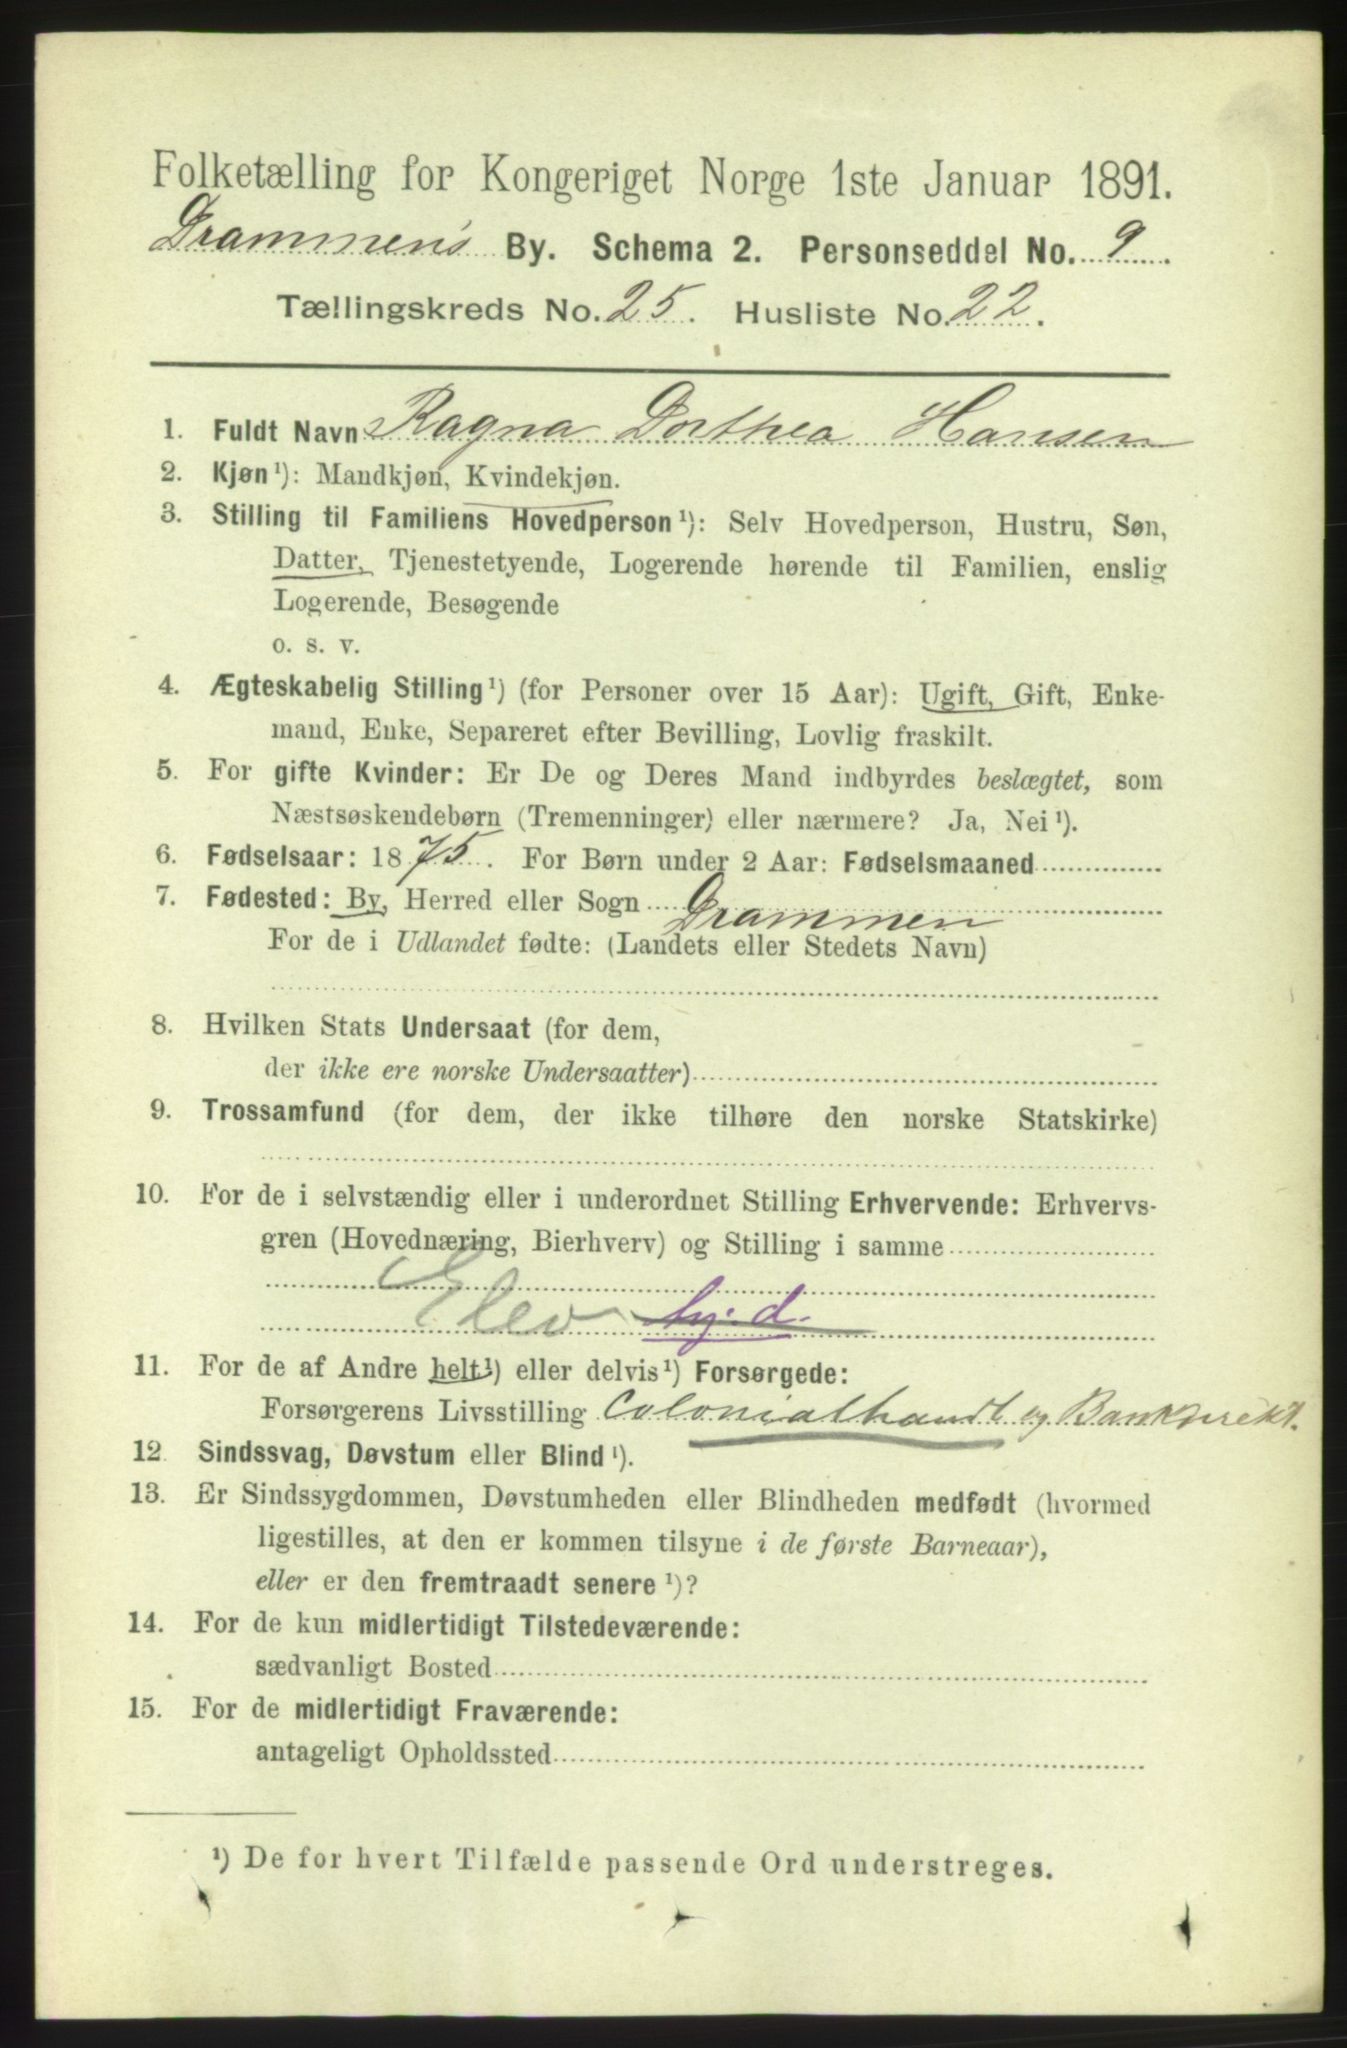 Folketælling for Kongeriget Norge 1ste Januar 1891.
Drammens By. Schema 2. Personseddel No. 9.
Tællingskreds No. 25. Husliste No. 22.
1. Fuldt Navn Ragna Dorthea Hansen
2. Kjøn¹): Mandkjøn, Kvindekjøn.
3. Stilling til Familiens Hovedperson¹): Selv Hovedperson, Hustru, Søn,
Datter, Tjenestetyende, Logerende hørende til Familien, enslig
Logerende, Besøgende
o. s. v.
4. Ægteskabelig Stilling¹) (for Personer over 15 Aar): Ugift, Gift, Enke-
mand, Enke, Separeret efter Bevilling, Lovlig fraskilt.
5. For gifte Kvinder: Er De og Deres Mand indbyrdes beslægtet, som
Næstsøskendebørn (Tremenninger) eller nærmere? Ja, Nei¹).
6. Fødselsaar: 1875. For Børn under 2 Aar: Fødselsmaaned
7. Fødested: By, Herred eller Sogn Drammen
For de i Udlandet fødte: (Landets eller Stedets Navn)
8. Hvilken Stats Undersaat (for dem,
der ikke ere norske Undersaatter)
9. Trossamfund (for dem, der ikke tilhøre den norske Statskirke)
10. For de i selvstændig eller i underordnet Stilling Erhvervende: Erhvervs-
gren (Hovednæring, Bierhverv) og Stilling i samme
Elev hj. d.
11. For de af Andre helt¹) eller delvis¹) Forsørgede:
Forsørgerens Livsstilling Colonialhandl og Bankdirekt.
12. Sindssvag, Døvstum eller Blind¹).
13. Er Sindssygdommen, Døvstumheden eller Blindheden medfødt (hvormed
ligestilles, at den er kommen tilsyne i de første Barneaar),
eller er den fremtraadt senere¹)?
14. For de kun midlertidigt Tilstedeværende:
sædvanligt Bosted
15. For de midlertidigt Fraværende:
antageligt Opholdssted
¹) De for hvert Tilfælde passende Ord understreges.